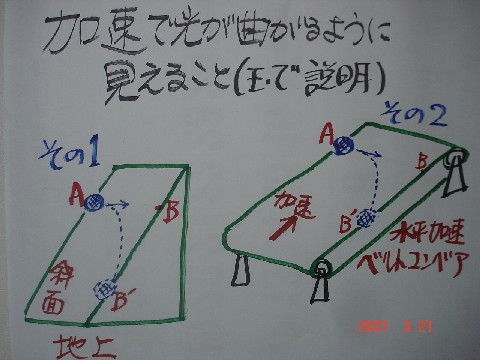 加速で光が曲がるように
見えること(玉で説明)
その1
A
B
B'
斜面
地上
その2
A
B
B'
加速
水平加速
ベルトコンベア
2007 3.21